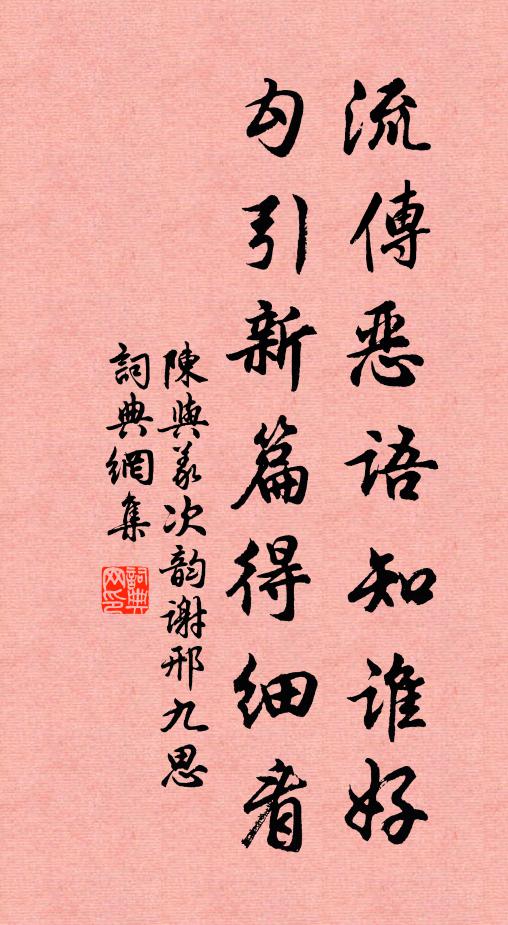 流傳惡語知誰好
勾引新篇得細看
陳與義次韵謝邢九思
詞典網集
詞典網印